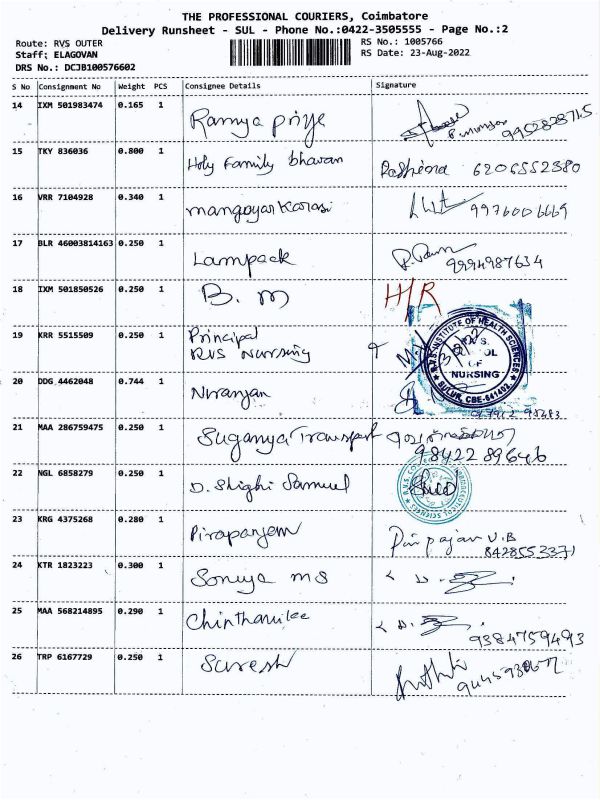 THE PROFESSIONAL COURIERS, Coimbatore
Delivery Runsheet - SUL - Phone No.:0422-3505555 - Page No.:2
Route: RVS OUTER
Staff; ELAGOVAN
DRS No.: DCJB100576602
RS No.: 1005766
RS Date: 23-Aug-2022
S No Consignment No Weight PCS Consignee Details Signature
14 IXM 501983474 0.165 1 Ramya Priye
15 TKY 836036 0.800 1 Holy Family bhavan 6206552380
16 VRR 7104928 0.340 1 mangayarkarasi 9976006669
17 BLR 46003814163 0.250 1 Lampack 9994987634
18 IXM 501850526 0.250 1 B. m H/R
19 KRR 5515509 0.250 1 Principal
RVS Nursing
R.V.S. INSTITUTE OF HEALTH SCIENCES
NURSING
SULUR, CBE-641402
20 DDG 4462048 0.744 1 Niranjan
21 MAA 286759475 0.250 1 Suganya Transport
98422 89646
22 NGL 6858279 0.250 1 D. Shighi Samuel
23 KRG 4375268 0.280 1 Pirapanjem
8428553371
24 KTR 1823223 0.300 1 Soniya ms
25 MAA 568214895 0.290 1 Chinthanilee
9384759493
26 TRP 6167729 0.250 1 Suresh